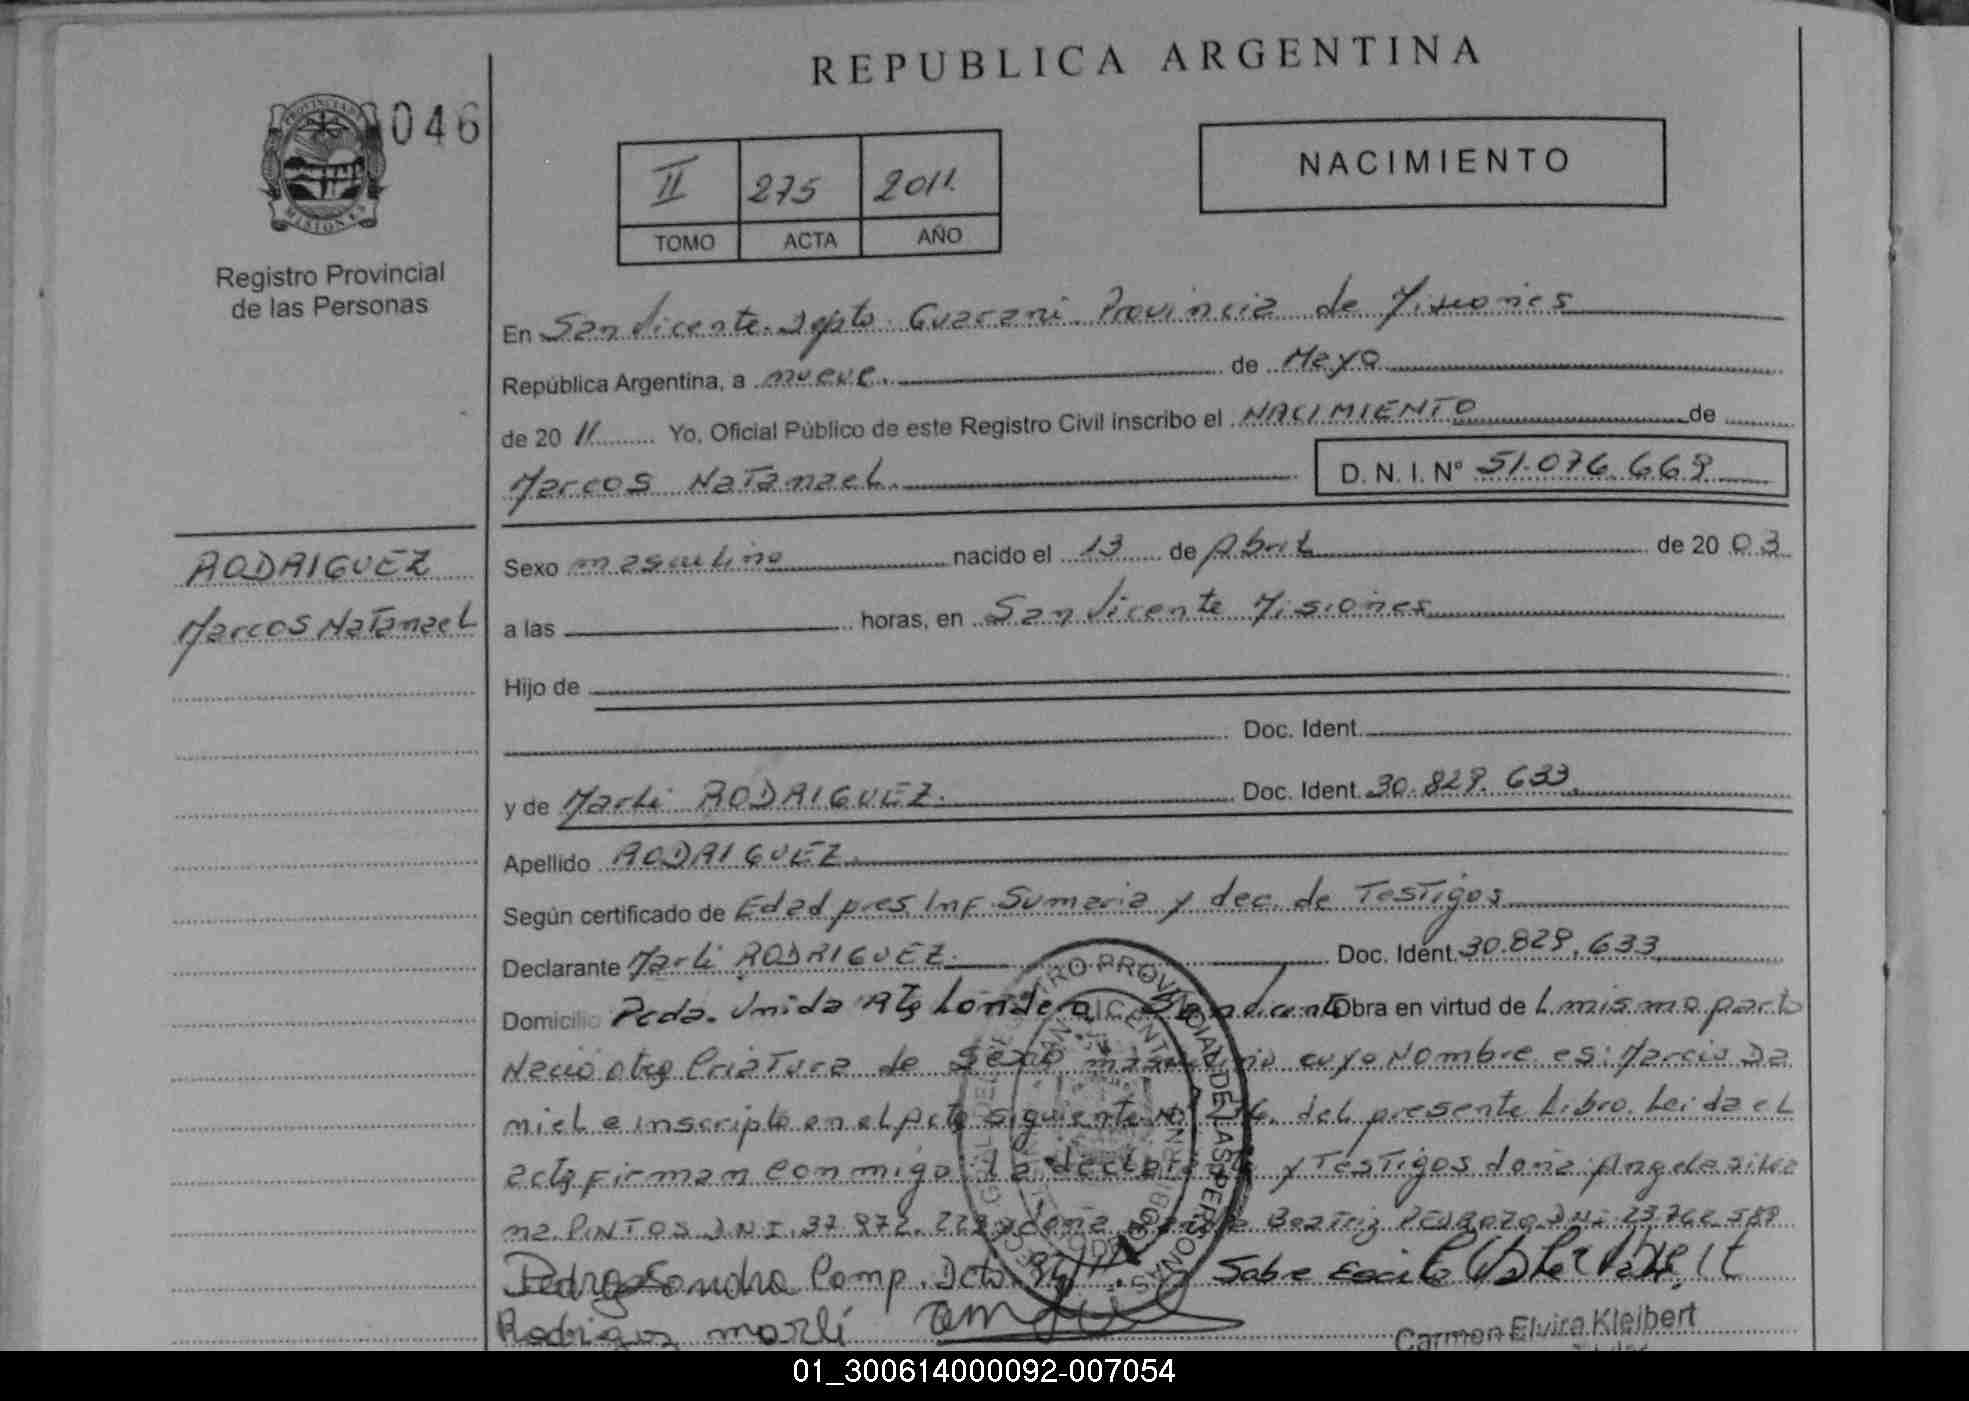 REPUBLICA ARGENTINA
PROVINCIA DE
MISIONES
046
II 275 2011.
TOMO ACTA AÑO
NACIMIENTO
Registro Provincial
de las Personas
En San Vicente Dpto Guarani Provincia de Misiones
República Argentina, a nueve. de Mayo
de 20 11 Yo, Oficial Público de este Registro Civil inscribo el NACIMIENTO de
Marcos Natanael. D. N. I. N° 51.076.669
RODRIGUEZ
Marcos Natanael
Sexo masculino nacido el 13 de Abril de 20 03
a las horas, en San Vicente Misiones
Hijo de
Doc. Ident.
y de Marli RODRIGUEZ. Doc. Ident. 30.829.633.
Apellido RODRIGUEZ.
Según certificado de Edad pres. Inf. Sumaria y dec. de Testigos
Declarante Marli RODRIGUEZ. Doc. Ident. 30.829.633
Domicilio Pcda. Unida Londero San Vicente Obra en virtud de L mismo parto
Nacio otra Criatura de Sexo masculino cuyo Nombre es: Marcio Da
niel e inscripto en el Acta siguiente del presente Libro. Leida el
acta firman conmigo la declarante y Testigos doña Angela silva
na PINTOS D.N.I. 37.972. doña Beatriz PEDROZO DNI 23.762.589
Sandra Comp. Sobre
Rodriguez marli
Carmen Elvira Kleibert
01_300614000092-007054